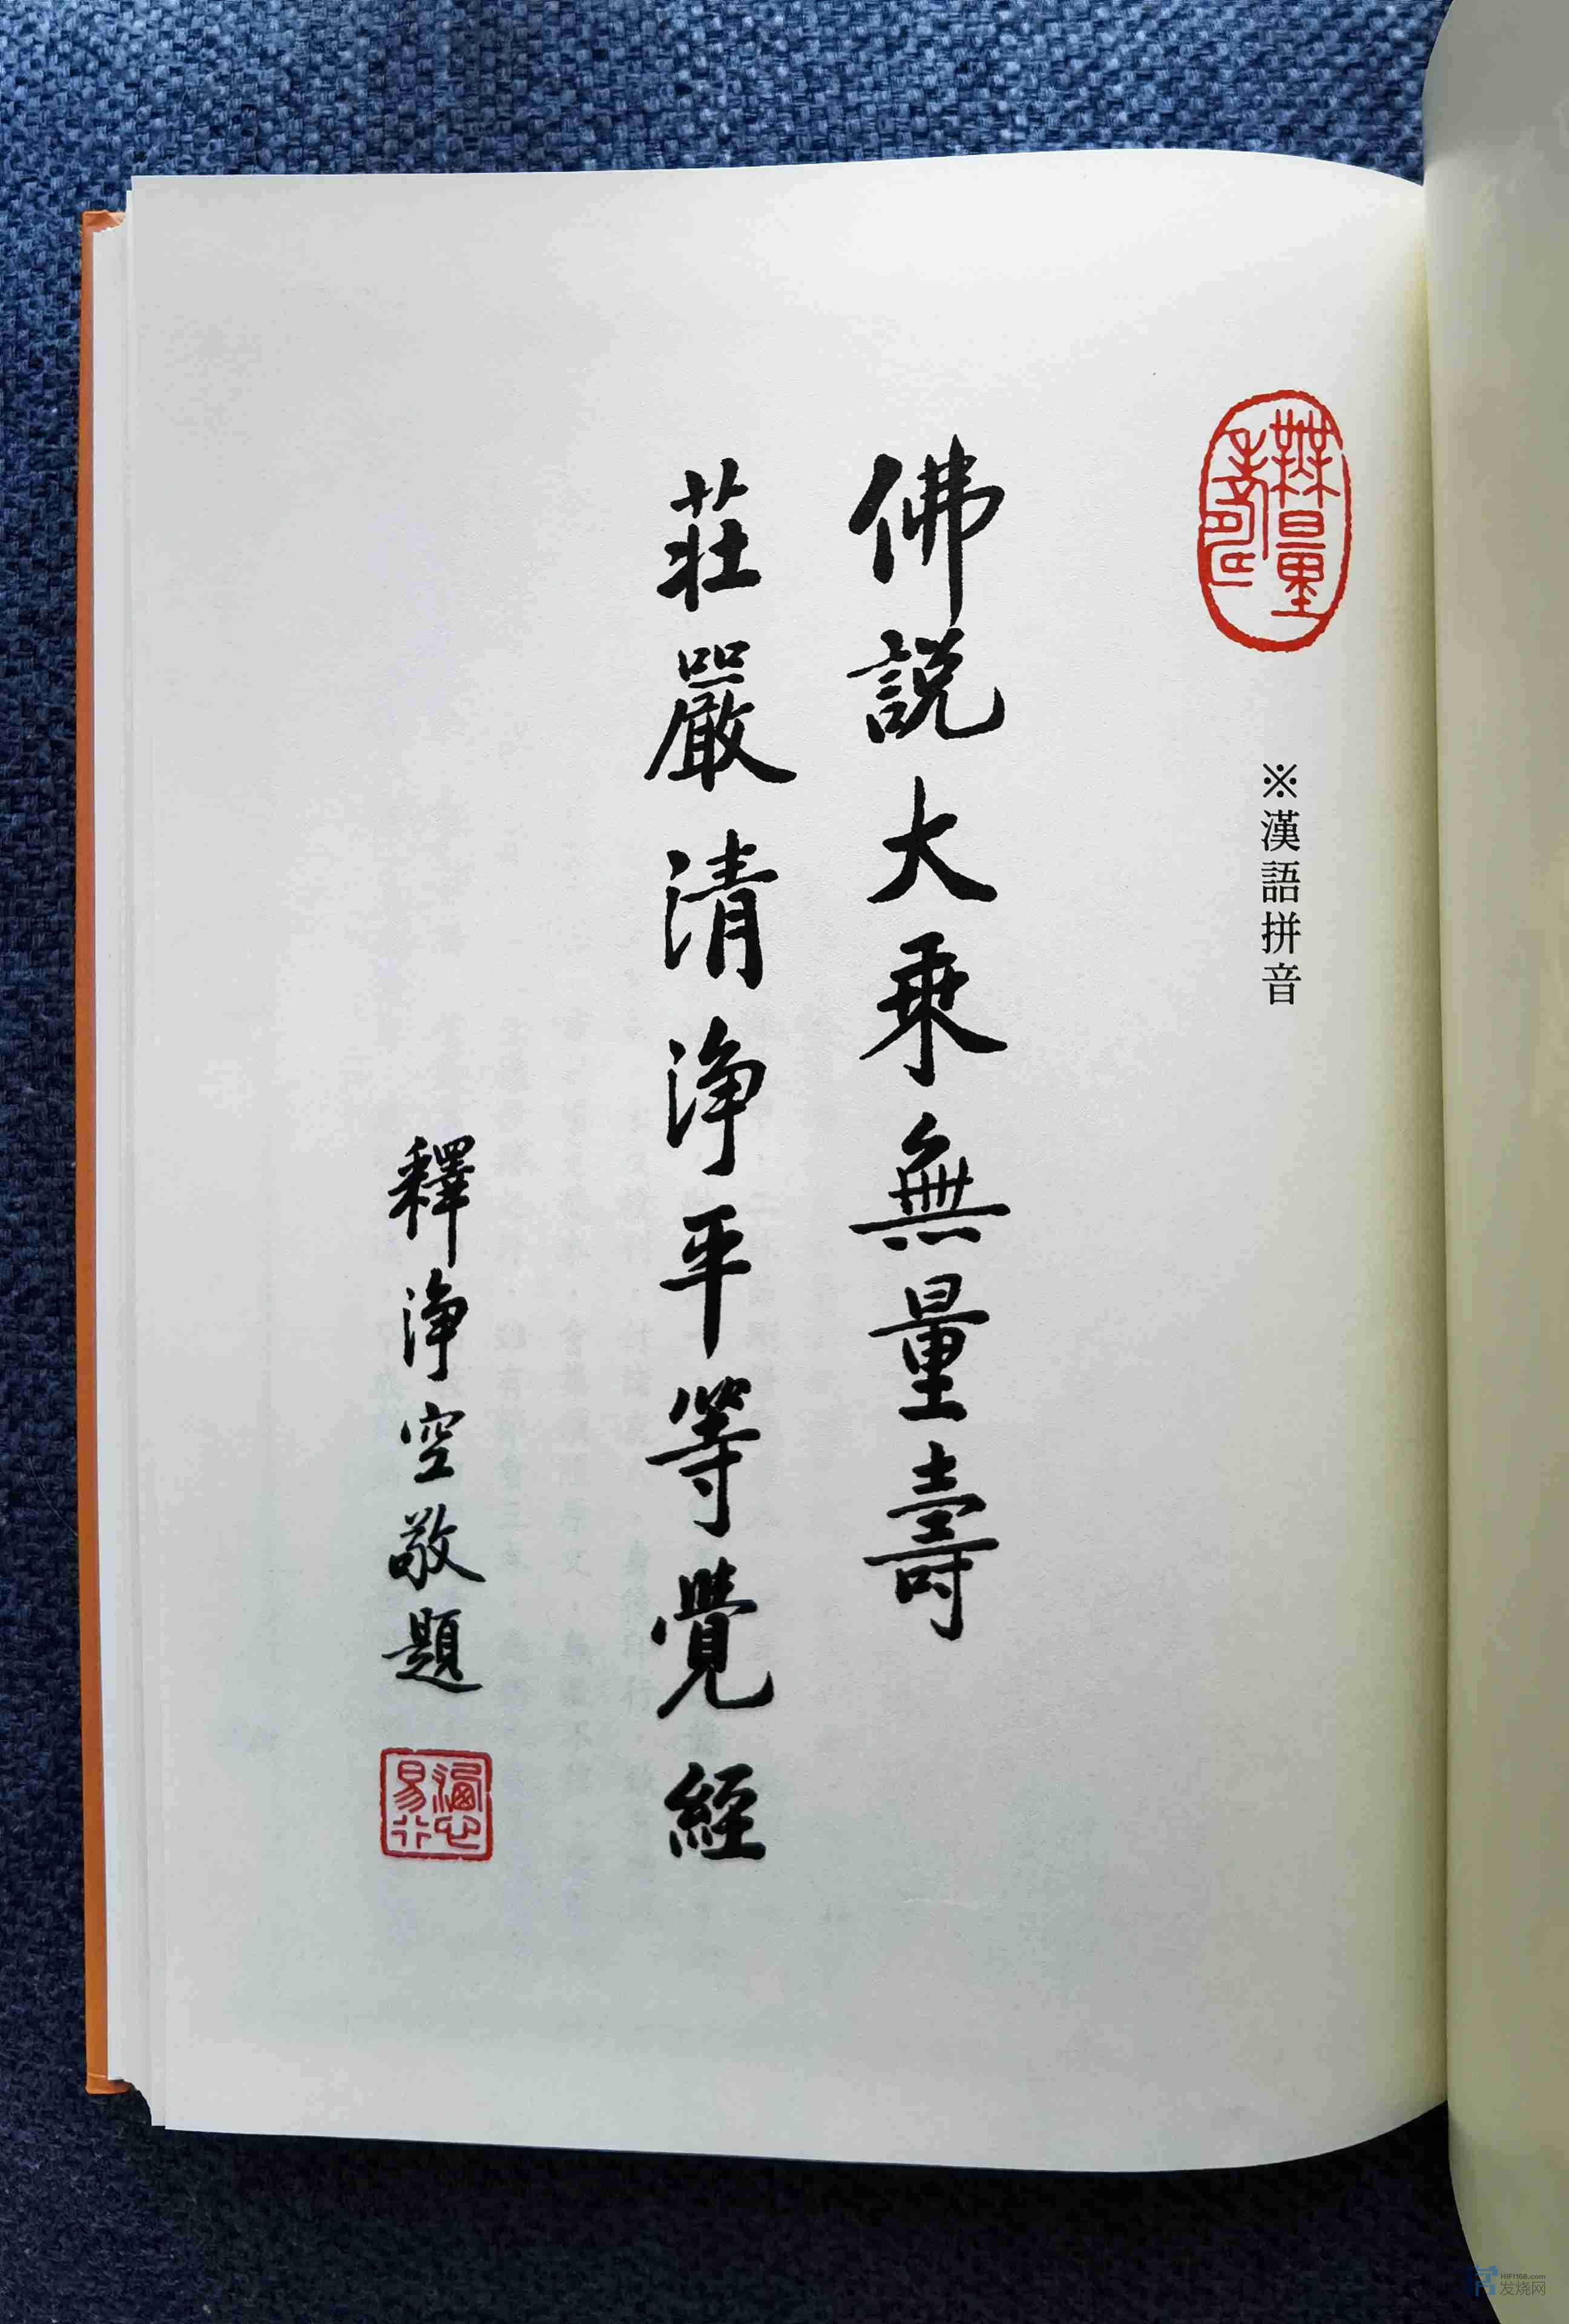 無量壽
※漢語拼音
佛說大乘無量壽
莊嚴清淨平等覺經
釋淨空敬題
易行
HIFI168.com
发烧网